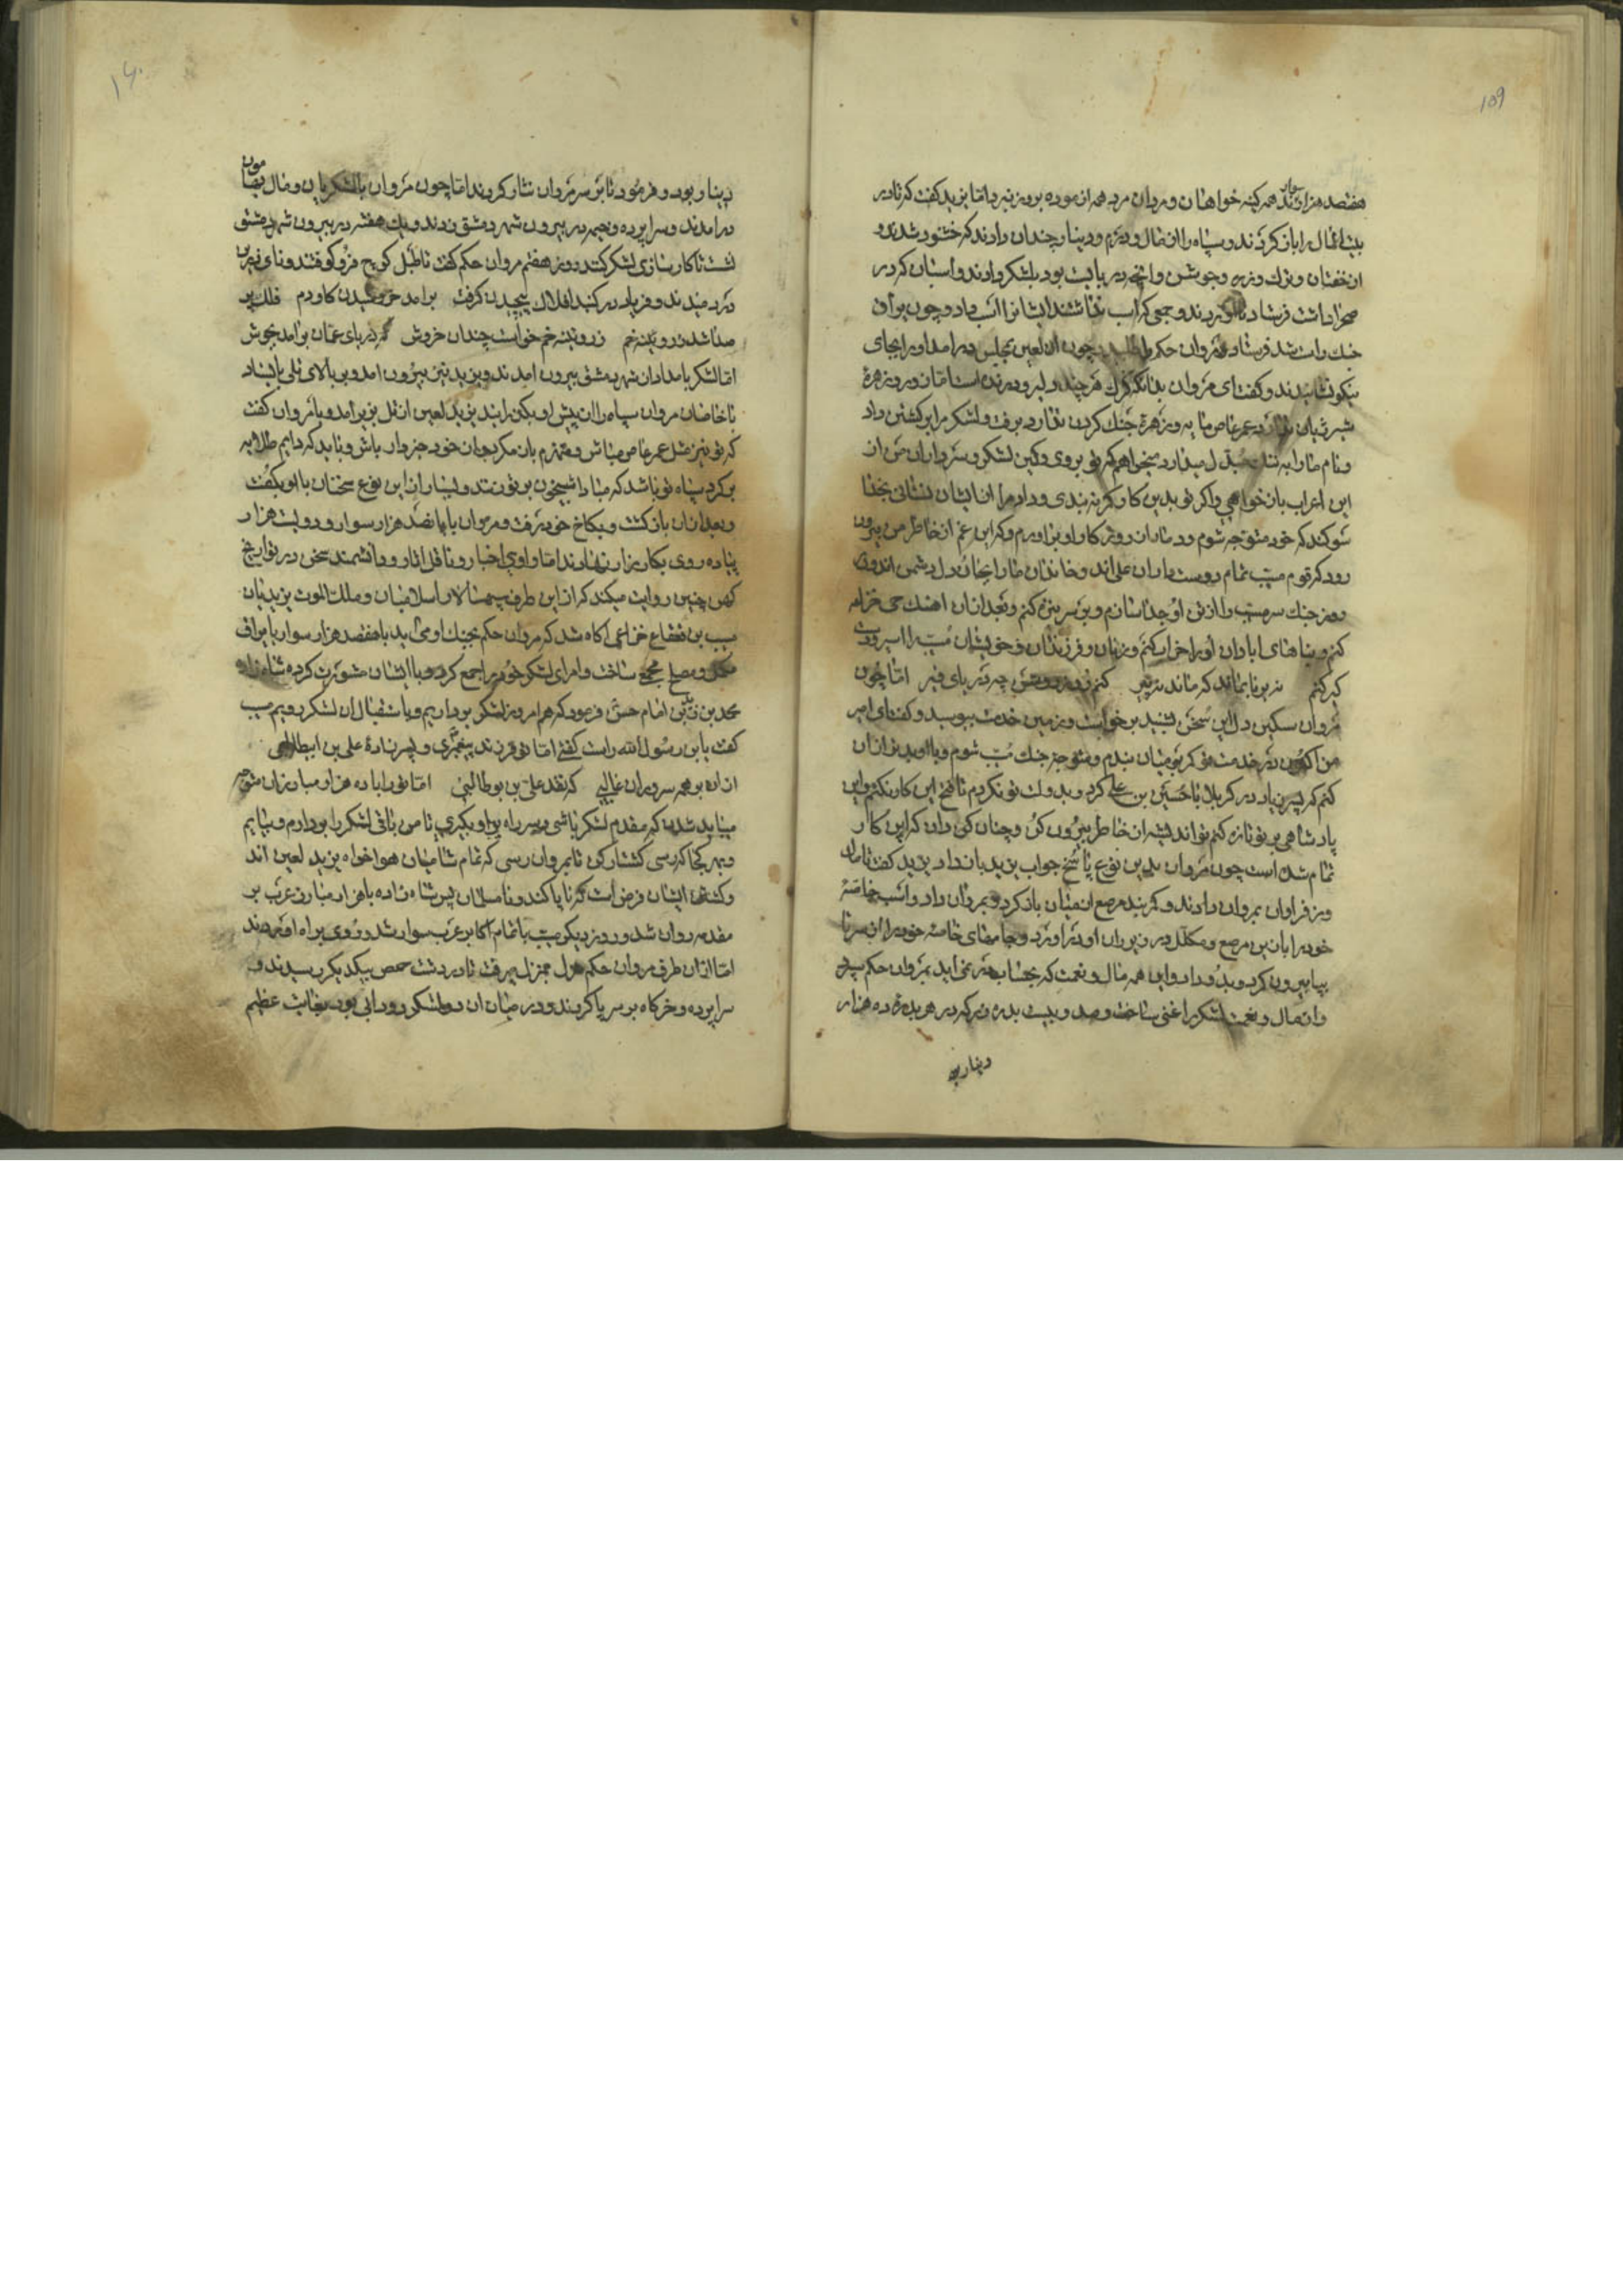 ۱۵۹
هفتصد هزار سوارند همه کینه خواهان و مردان مرد همه ازموده بروز نبرد اما یزید کفت که تا در
بیت المال را باز کردند و سپاه را از مال و درم و دینار چندان دادند که خشنود شدند و
از خفتان و ترک و زره و جوشن و انچه در بایست بود بلشکر دادند و اسبان که در
صحرا داشت فرستاد تا اوردند و جمعی که اسب نداشتند ایشانرا اسب داد و چون یراق
جنک راست شد فرستاد و مروان حکم را طلبید چون ان لعین بمجلس در امد او را بجای
نیکو نشانیدند و کفت ای مروان بدانکه هر چند دلیر و درنده است اما ن و زهرهٔ
شیر ژیان ندارد عمر عاص مایه و زهرهٔ جنک کردن ندارد برفت و لشکر مرا بکشتن داد
و نام ما را به ننک مبدل میخواهم که تو بروی و کین لشکر و سرداران من از
این اعراب باز خواهی و اکر تو بدین کار کمر نه بندی و داد مرا از ایشان نستانی بخدا
سوکند که خود متوجه شوم و دمار از روزکار او براورم و که این غم از خاطر من بیرون
رود که قوم مسیب تمام دوست داران علی اند و خاندان ما را بجان و دل دشمن اند و در
روز جنک سر مسیب را از تن او جدا سازم و بر سر نیزه کنم و بعد از ان اهنک حی خزاعه
کنم و بناهای ابادان او را خراب کنم و زنان و فرزندان و خویشان مسیب را اسیر و
کیر کنم نه برنا بماند که ماند نه پیر کنم زود روشن چه دریای قیر اما چون
مروان سکین دل این سخن بشنید برخواست و زمین خدمت ببوسید و کفت ای امیر
من اکنون در خدمت تو کمر بر میان بندم و متوجه جنک مسیب شوم و با او بد تر از ان
کنم که پسر زیاد در کربلا با حسین بن علی کرد و بدولت تو نکردم تا فتح این کار نکنم و این
پادشاهی بر تو تازه کنم تو اندیشه از خاطر بیرون کن و چنان کن و دان که این کار
تمام شده است چون مروان بدین نوع پاسخ جواب یزید باز داد یزید کفت تا مال
و زر فراوان بمروان دادند و کمر بند مرصع از میان باز کرد و بمروان داد و اسب خاصهٔ
خود را با زین مرصع و مکلل در زیر ران او در اورد و جامهای خاصه خود را از سر تا
بپا بیرون کرد و بدو داد و این همه مال و نعمت که بحساب در نمی اید بمروان حکم سپرد
و از مال و نعمت لشکر را غنی ساخت و صد و بیست بدره زر که در هر بدرهٔ ده هزار
دینار بو
۱۶۰
دینار بود و فرمود تا بر سر مروان نثار کردند اما چون مروان با لشکریان و مال
در امدند و سراپرده و خیمه در بیرون شهر دمشق زدند و یک هفته در بیرون شهر دمشق
نشست تا کار سازی لشکر کنند روز هفتم مروان حکم کفت تا طبل کوچ فرو کوفتند و نای زرین
در دمیدند و فریاد در کنبد افلاک پیچیدن کرفت برامد خروشیدن کاودم فلک پر
صدا شد ز رویینه خم ز رویینه خم خواست چندان خروش که دریای عمان برامد بجوش
اما لشکر بامدادان شهر دمشق بیرون امدند و یزید نیز بیرون امد و بر بالای تلی بایستاد
با خاصان مروان سپاه را از پیش او بکذرانید یزید لعین از تل بزیر امد و با مروان کفت
که تو نیز مثل عمر عاص مباش و منهزم باز مکرد و از خود خبردار باش و باید که دایم طلایه
بر کرد سپاه تو باشد که مبادا شبیخون بر تو زنند و بسیار از این نوع سخنان با او بکفت
و بعد از ان باز کشت و بکاخ خود رفت و مروان با پانصد هزار سوار و دویست هزار
پیاده روی بکارزار نهادند اما راوی اخبار و ناقل اثار و دانشمند سخن در تواریخ
کهن چنین روایت میکند که از این طرف سپهسالار اسلامیان و ملک الموت یزیدیان
مسیب بن قعقاع خزاعی اکاه شد که مروان حکم بجنک او می اید با هفتصد هزار سوار با یراق
مکمل و مصلح مجمع ساخت و امرای لشکر خود را جمع کرد و با ایشان مشورت کرده شاه زاده
محمد بن زین امام حسن فرمود که هم امروز لشکر برداریم و باستقبال ان لشکر رویم مسیب
کفت یا بن رسول الله راست کفتی اما تو فرزند پیغمبری و پسر زادهٔ علی بن ابیطالبی
از ان بر همه سروران غالبی که نقد علی بن بو طالبی اما تو را با ده هزار مبارزان متوجه
میباید شدن که مقدم لشکر باشی و سر راه بر او بکیری تا من باقی لشکر را بردارم و بیایم
و بهر کجا که رسی کشتار کن تا بمروان رسی که تمام شامیان هوا خواه یزید لعین اند
و کشتن ایشان فرض است که ناپاکند و نا مسلمان پس شاه زاده با هزار مبارز عرب بر
مقدمه روان شد و روز دیکر مسیب با تمام اکابر عرب سوار شد و روی براه اوردند
اما از ان طرف مروان حکم هول بمنزل میرفت تا در دشت حمص بیکدیکر رسیدند و
سراپرده و خرکاه بر سر پا کردند و در میان ان دو لشکر رود ابی بود بغایت عظیم